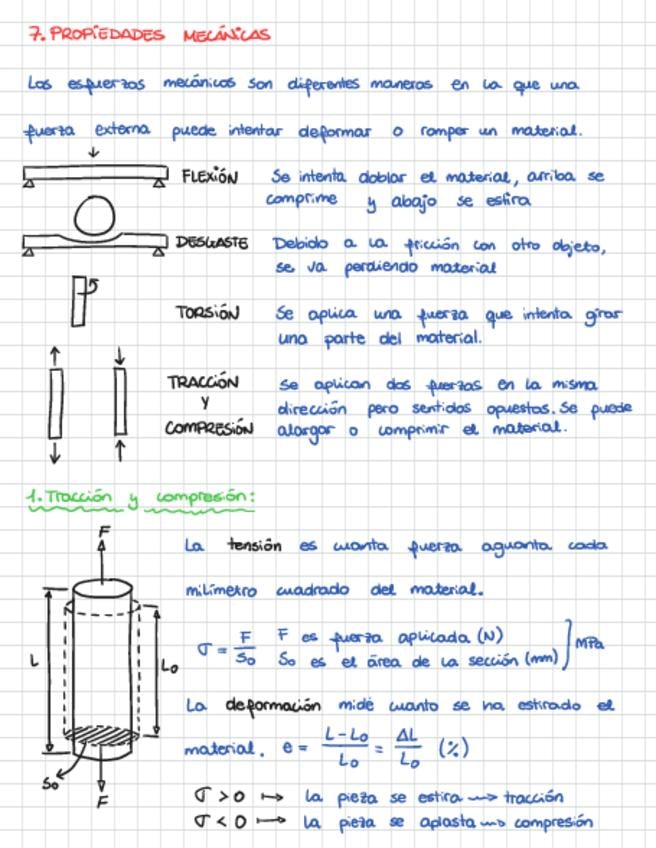 7. PROPIEDADES MECÁNICAS
Los esfuerzos mecánicos son diferentes maneras en la que una
fuerza externa puede intentar deformar o romper un material.
FLEXIÓN Se intenta doblar el material, arriba se
comprime y abajo se estira
DESGASTE Debido a la fricción con otro objeto,
se va perdiendo material
TORSIÓN Se aplica una fuerza que intenta girar
una parte del material.
TRACCIÓN Se aplican dos fuerzas en la misma
Y dirección pero sentidos opuestos. Se puede
COMPRESIÓN alargar o comprimir el material.
1. Tracción y compresión:
F
La tensión es cuanta fuerza aguanta cada
milímetro cuadrado del material.
σ = F/S₀ F es fuerza aplicada (N)
S₀ es el área de la sección (mm) ] MPa
L L₀
La deformación mide cuanto se ha estirado el
material. e = (L-L₀)/L₀ = ΔL/L₀ (%)
S₀
F
σ > 0 ↦ la pieza se estira ⟿ tracción
σ < 0 ↦ la pieza se aplasta ⟿ compresión